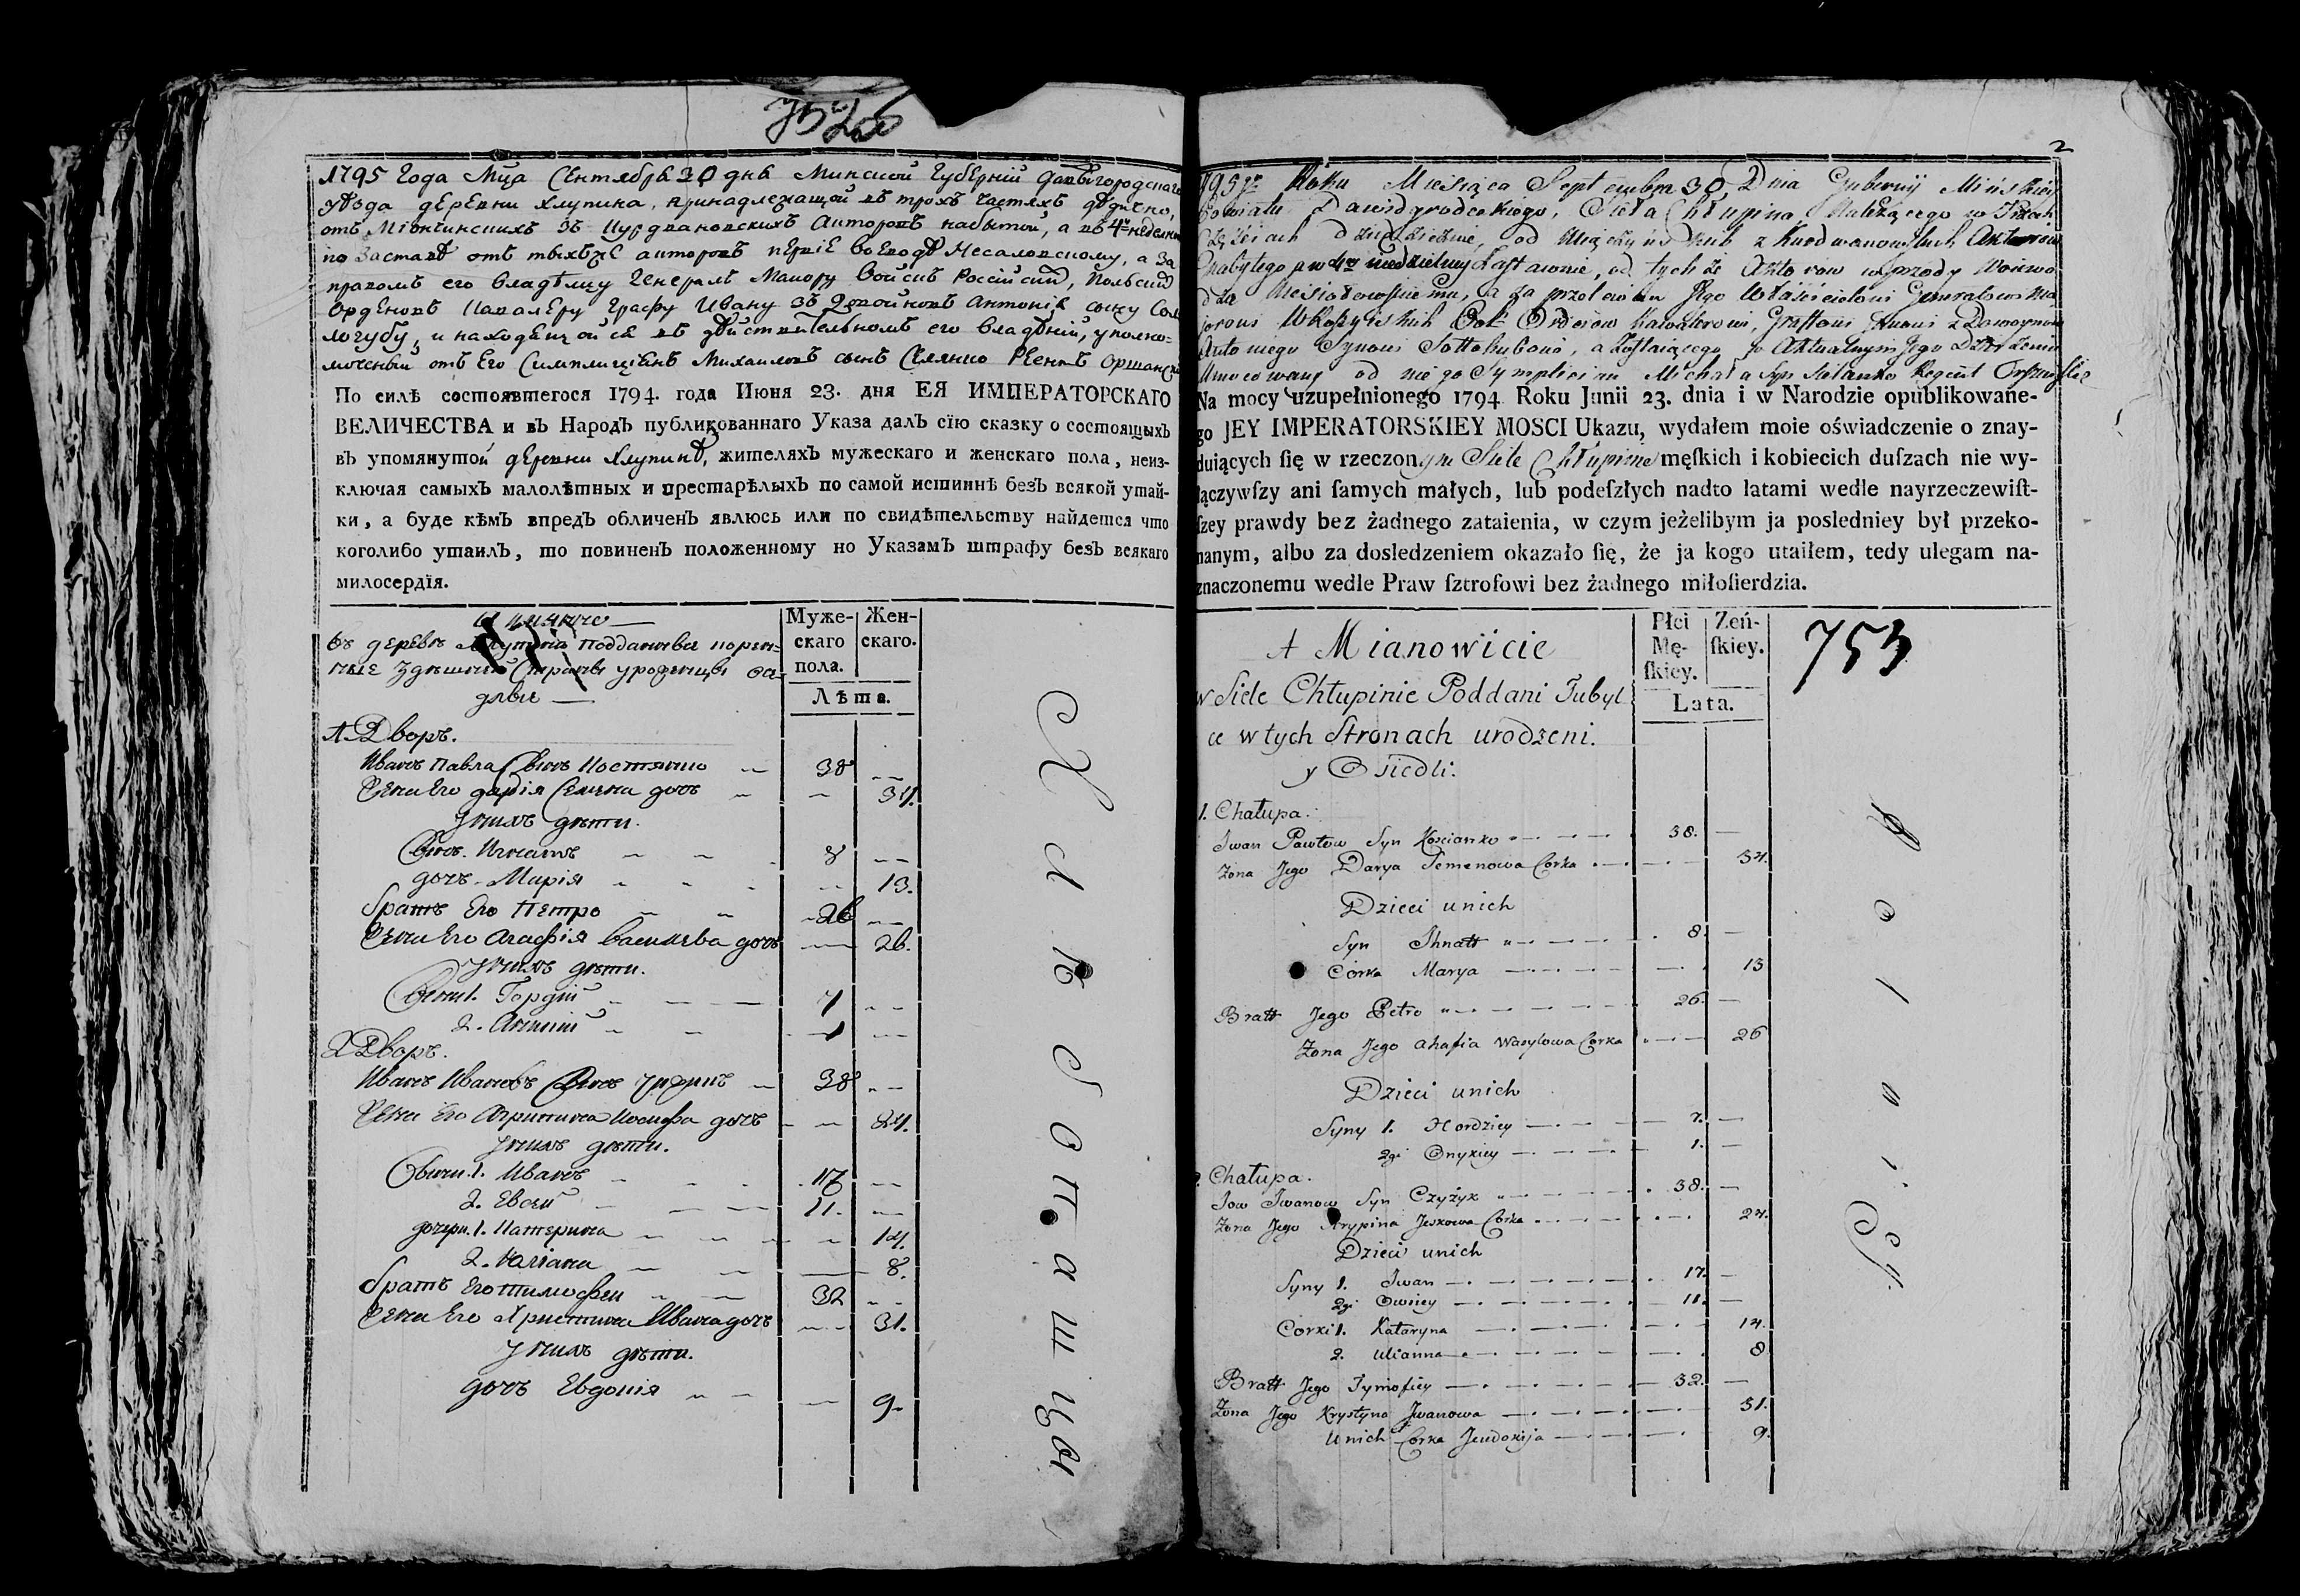 752об
1795 Года Мца Сентября 30 дня Минской Губерній Давыдгородского
уѣзда деревни Хлупина, принадлежащой въ трохъ частяхъ дѣдично,
отъ Міончинскихъ зъ Курдвановскихъ Акторовъ набытой, а въ 4й недѣльной
по заставѣ отъ тыхъже акторовъ перше воеводѣ Несаловскому, а за
правомъ его владѣльцу Генералъ Маіору Войскъ Россійскихъ, Польскихъ
Орденовъ Кавалеру Графу Ивану зъ Двойновъ Антонія сыну Сол
логубу, и находящойся въ дѣйствительномъ его владѣніи, уполно=
моченный отъ Его Симплиціанъ Михаиловъ сынъ Селянко Регентъ Оршанскій
По силѣ состоявшегося 1794. года Июня 23. дня ЕЯ ИМПЕРАТОРСКАГО
ВЕЛИЧЕСТВА и въ Народъ публикованнаго Указа далъ сїю сказку о состоящыхъ
въ упомянутой деревни Хлупинѣ, жителяхъ мужескаго и женскаго пола, неиз-
ключая самыхъ малолѣтных и престарѣлыхъ по самой истиннѣ безъ всякой утай-
ки, а буде кѣмъ впредъ обличенъ явлюсь или по свидѣтельству найдется что
коголибо утаилъ, то повиненъ положенному но Указамъ штрафу безъ всякаго
милосердїя.
А имянно
Муже-
скаго
пола.
Жен-
скаго.
Въ деревѣ Хлупинѣ Подданные корен=
ные здѣшней Страны уроженцы оса=
длые
Лѣта.
1. Дворъ.
Иванъ Павла Сынъ Костянко 38
Жена Его Дарія Семена дочь 34.
У нихъ дѣти.
Сынъ. Игнатъ 8
дочь. Марія 13.
Братъ Его Петро 26
Жена Его Агафія Васильева дочь 26.
У нихъ дѣти.
Сыны 1. Гордій 7
2. Аникій 1
2 Дворъ.
Иванъ Ивановъ Сынъ Чижикъ 38
Жена Его Агрипина Иосифа дочь 24.
У нихъ дѣти.
Сыны. 1. Иванъ 17
2. Евсей 11.
дочери. 1. Катерина 14.
2. Юліана 8.
Братъ Его Тимофей 32
Жена Его Христина Ивана дочь 31.
У нихъ дѣти.
дочь Евдокія 9.
2
1795go Roku Miesiąca Septembra 30, Dnia Gubernij Mińskiey
Powiatu Dawidgrodeckiego, Sieła Chłupina Należącego w Trzech
Częściach dziedzicznie, od Miączyńskich z Kurdwanowskich Aktorow
Nabytego a w 4ey niedzielney Zastawnie, od tychże Aktorow wprzody Woiewo
dzie Niesiołowskiemu, a za przelewem Jego Właścicielowi Generałowi Ma
jorowi Wkossyiskich Pol: Orderow Kawalerowi, Graffowi Janowi z Dowoynow
Antoniego Synowi Sołłohubowi, a Zostaiącego w Aktualnym Jego Dzierżeniu
Umocowany od niego Symplician Michała Syn Sielanko Regent Orszański
Na mocy uzupełnionego 1794 Roku Junii 23. dnia i w Narodzie opublikowane-
go JEY IMPERATORSKIEY MOSCI Ukazu, wydałem moie oświadczenie o znay-
duiących ſię w rzeczonym Siele Chłupinie męſkich i kobiecich duſzach nie wy-
łączywſzy ani ſamych małych, lub podeſzłych nadto latami wedle nayrzeczewiſt-
ſzey prawdy bez żadnego zataienia, w czym jeżelibym ja posledniey był przeko-
nanym, albo za dosledzeniem okazało ſię, że ja kogo utaiłem, tedy ulegam na-
znaczonemu wedle Praw ſztrofowi bez żadnego miłoſierdzia.
A Mianowicie
Płci
Mę-
ſkiey.
Żeń-
ſkiey.
753
w Siele Chłupinie Poddani Tubyl
ce w tych Stronach urodzeni.
y Osiedli.
Lata.
1. Chałupa.
Iwan Pawłow Syn Kościanko 38.
Żona Jego Darya Semenowa Corka 34.
Dzieci unich
Syn Ihnatt 8.
Córka Marya 13
Bratt Jego Petro 26.
Żona Jego Ahafia Wasylowa Corka 26
Dzieci unich
Syny 1. Hordziey 7.
2gi Onykiey 1.
2. Chałupa.
Jow Iwanow Syn Czyżyk 38.
Żona Jego Krypina Jeskowa Corka 24.
Dzieci unich
Syny 1. Iwan 17.
2gi Owsiey 11.
Corki 1. Kataryna 14.
2. Ulianna 8
Bratt Jego Tymofiey 32.
Żona Jego Krystyna Iwanowa 31.
Unich Corka Jewdokija 9.